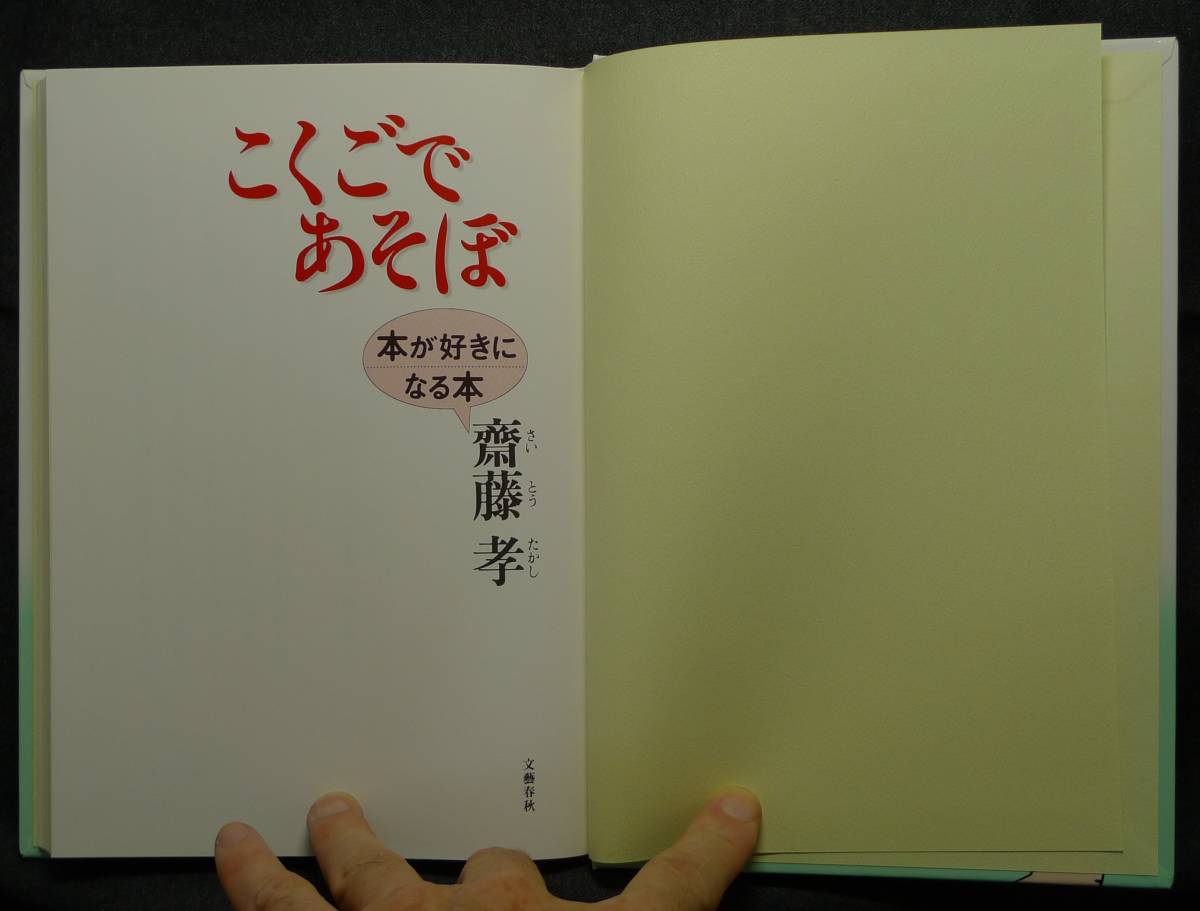 こくごで
あそぼ
本が好きに
なる本
齋藤 孝
さい とう たかし
文藝春秋